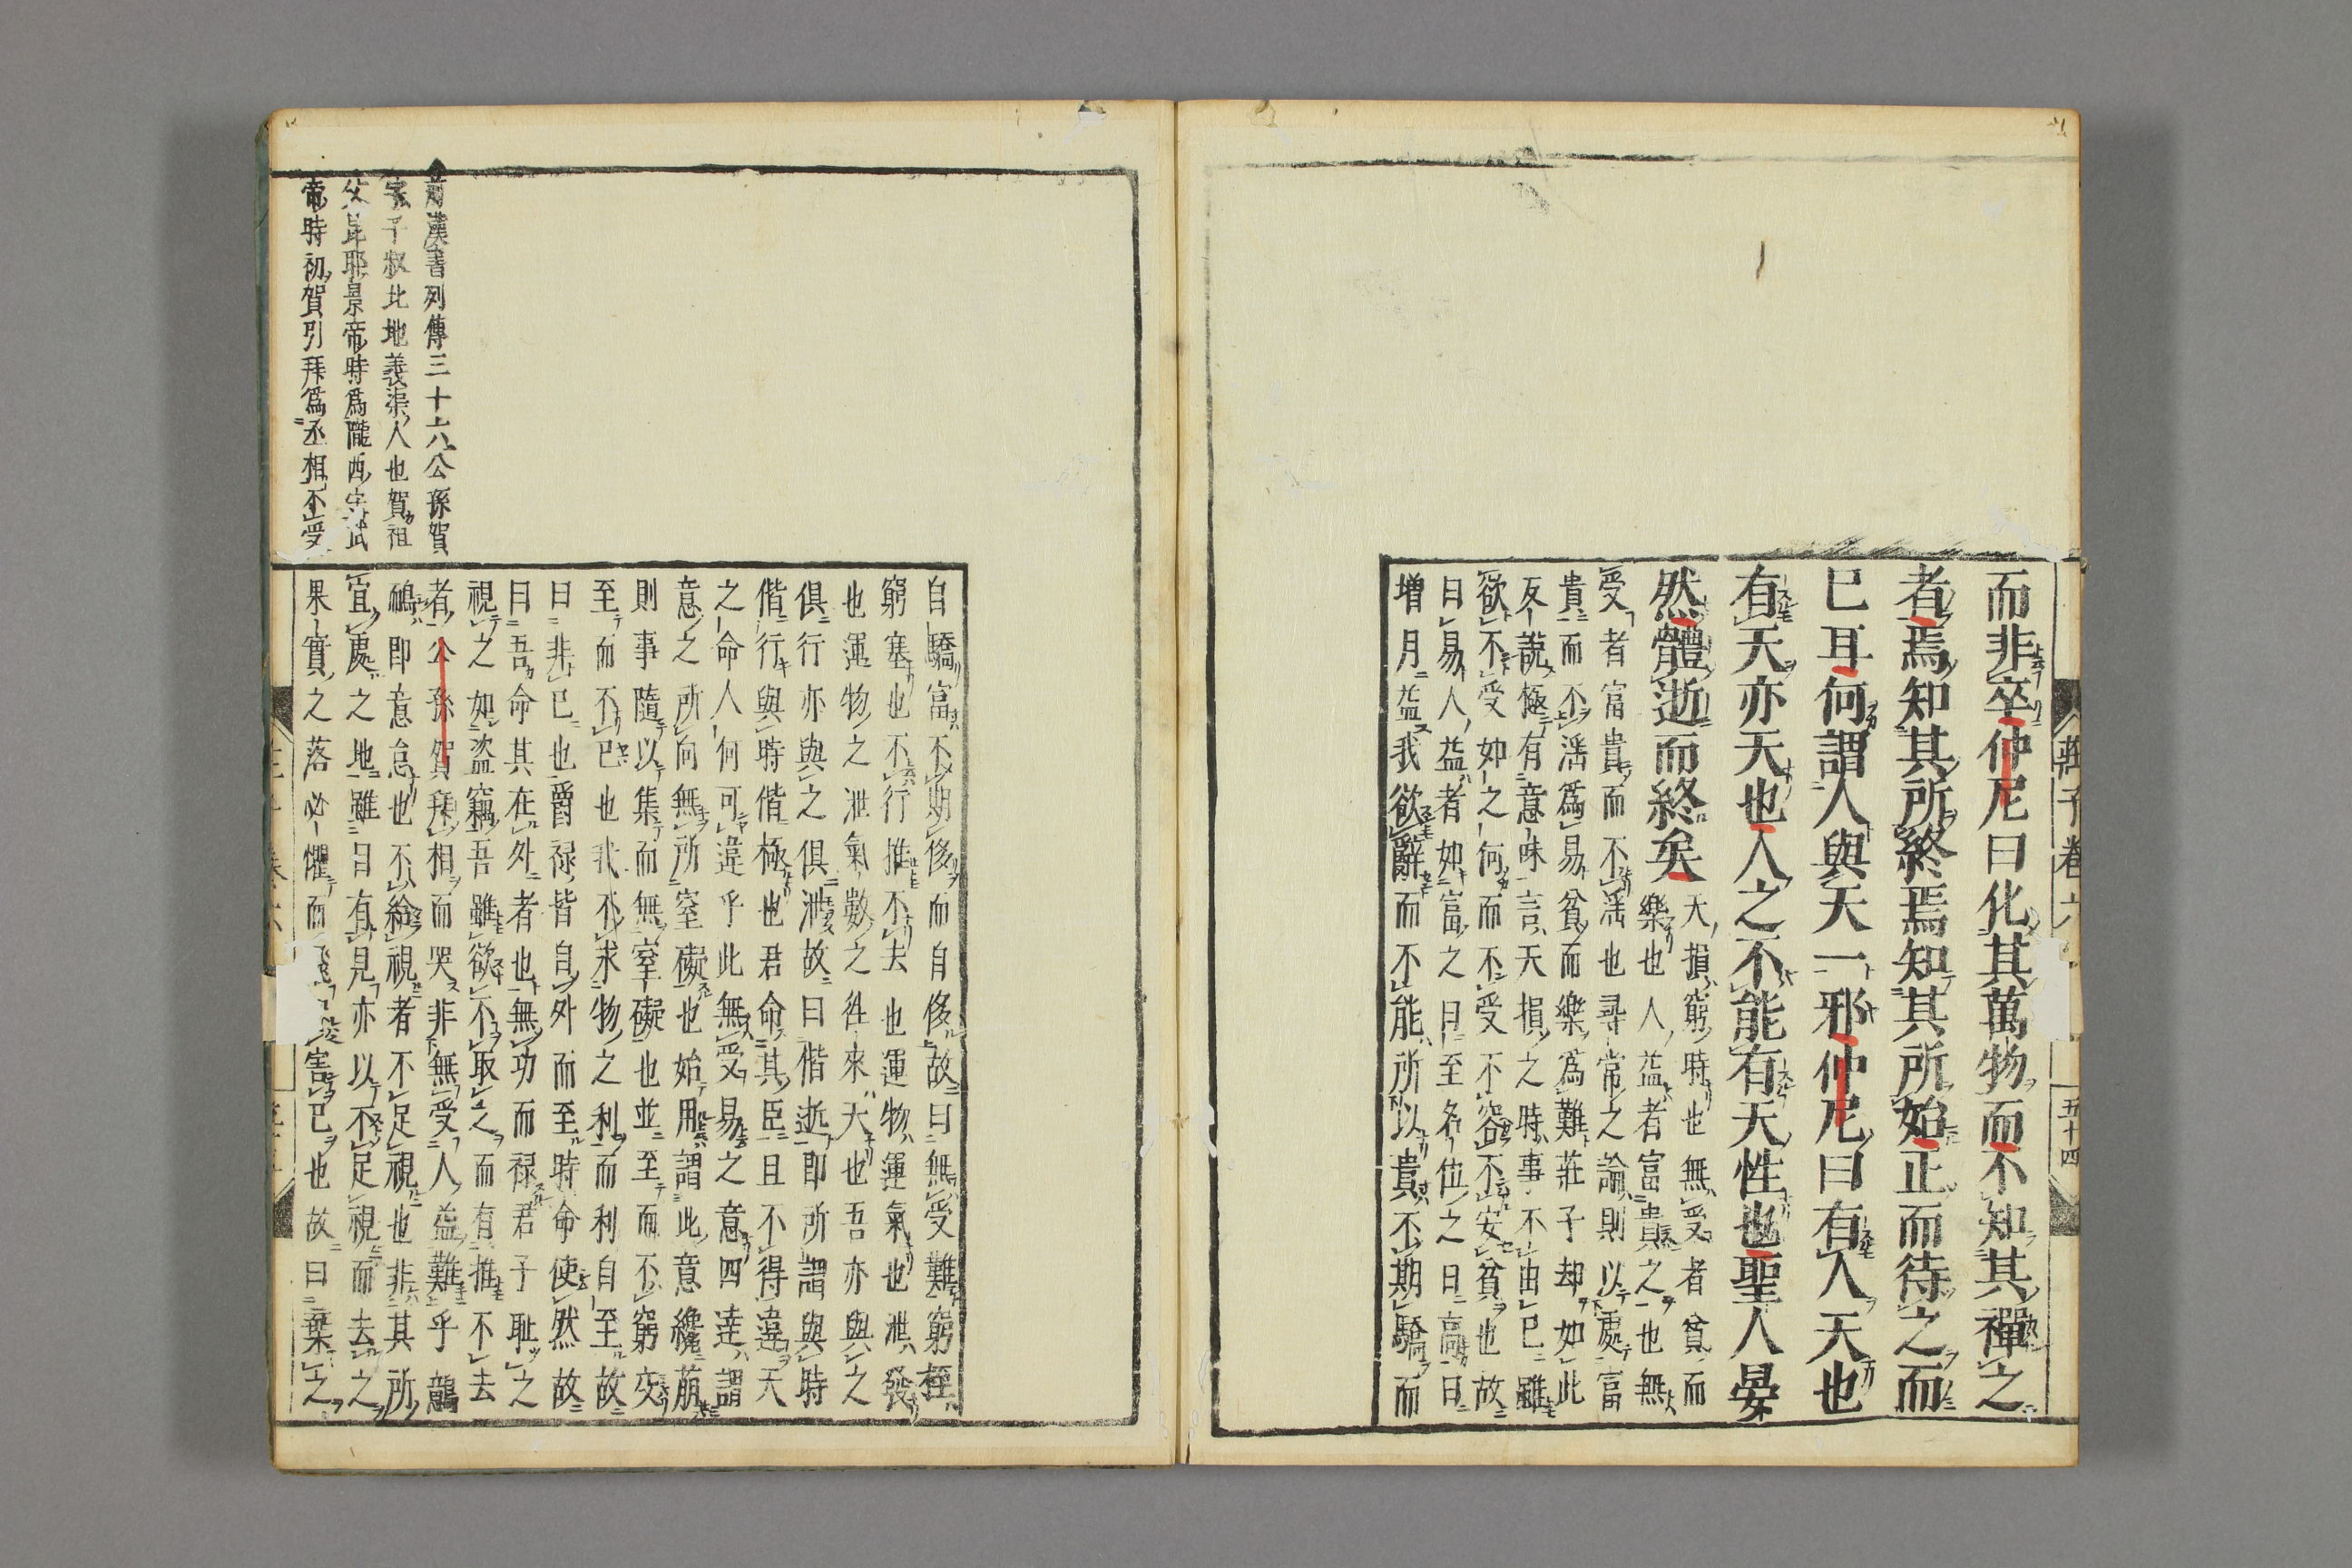 而非卒仲尼曰化其萬物而不知其禪之
者焉知其所終焉知其所始正而待之而
已耳何謂人與天一邪仲尼曰有人天也
有天亦天也人之不能有天性也聖人晏
然體逝而終矣
天損窮時也無受者貧而
樂也人益者富貴之也無
受者富貴而不淫也尋常之論則以處富
貴而不淫為易貧而樂為難莊子却如此
反說極有意味言天損之時事不由已雖
欲不受如之何而不受不容不安貧也故
曰易人益者如富之日至名位之日高日
增月益我欲辭而不能所以貴不期驕而
莊子卷六
五十四
前漢書列傳三十六公孫賀
字子叔北地義渠人也賀祖
父昆耶景帝時為隴西守
帝時初賀引拜為丞相不受
自驕富不期侈而自侈故曰無受難窮桎
窮塞也不行推不去也運物運氣也泄發
也運物之泄氣數之往來天也吾亦與之
俱行亦與之俱泄故曰偕逝即所謂與時
偕行與時偕極也君命其臣且不得違天
之命人何可違乎此無受易之意四達謂
意之所向無所窒礙也始用謂此意纔萠
則事隨以集而無窒礙也並至而不窮交
至而不已也我不求物之利而利自至故
曰非已也爵祿皆自外而至時命使然故
曰吾命其在外者也無功而祿君子恥之
視之如盜竊吾雖欲不取之而有推不去
者公孫賀拜相而哭非無受人益難乎鷾
鴯即意怠也不給視者不足視也非其所
宜處之地雖目有見亦以不足視而去之
果實之落必懼而害已也故曰棄之